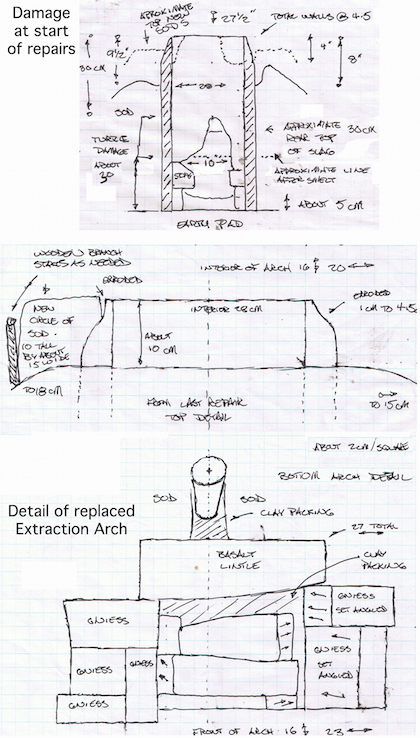 Damage
at start
of repairs
APPROXIMATE
TOP NEW
SOD'S
27 1/2"
TOTAL WALLS @ 4.5
9 1/2
30 CM
4"
8"
28
SOD
TUYERE
DAMAGE
ABOUT
30
APPROXIMATE 30 CM
REAR TOP
OF SLAG
10
STAND
APPROXIMATE LINE
AFTER SMELT
ABOUT 5 CM
EARTH PAD
WOODEN BRANCH
STAKES AS NEEDED
ERRODED
INTERIOR OF ARCH 16 20
NEW
CIRCLE OF
SOD.
10 TALL
BY ABOUT
15 WIDE
INTERIOR 28 CM
ERRODED
1 CM TO 4.5
ABOUT
10 CM
TO 18 CM
FORM LAST REPAIR
TOP DETAIL
TO 15 CM
ABOUT 2 CM/SQUARE
BOTTOM ARCH DETAIL
Detail of replaced
Extraction Arch
SOD
SOD
CLAY PACKING
27 TOTAL
BASALT
LINTLE
CLAY
PACKING
GNIESS
GNIESS
SET ANGLED
GNIESS
GNIESS
GNIESS
SET
ANGLED
GNIESS
FRONT OF ARCH 16 23